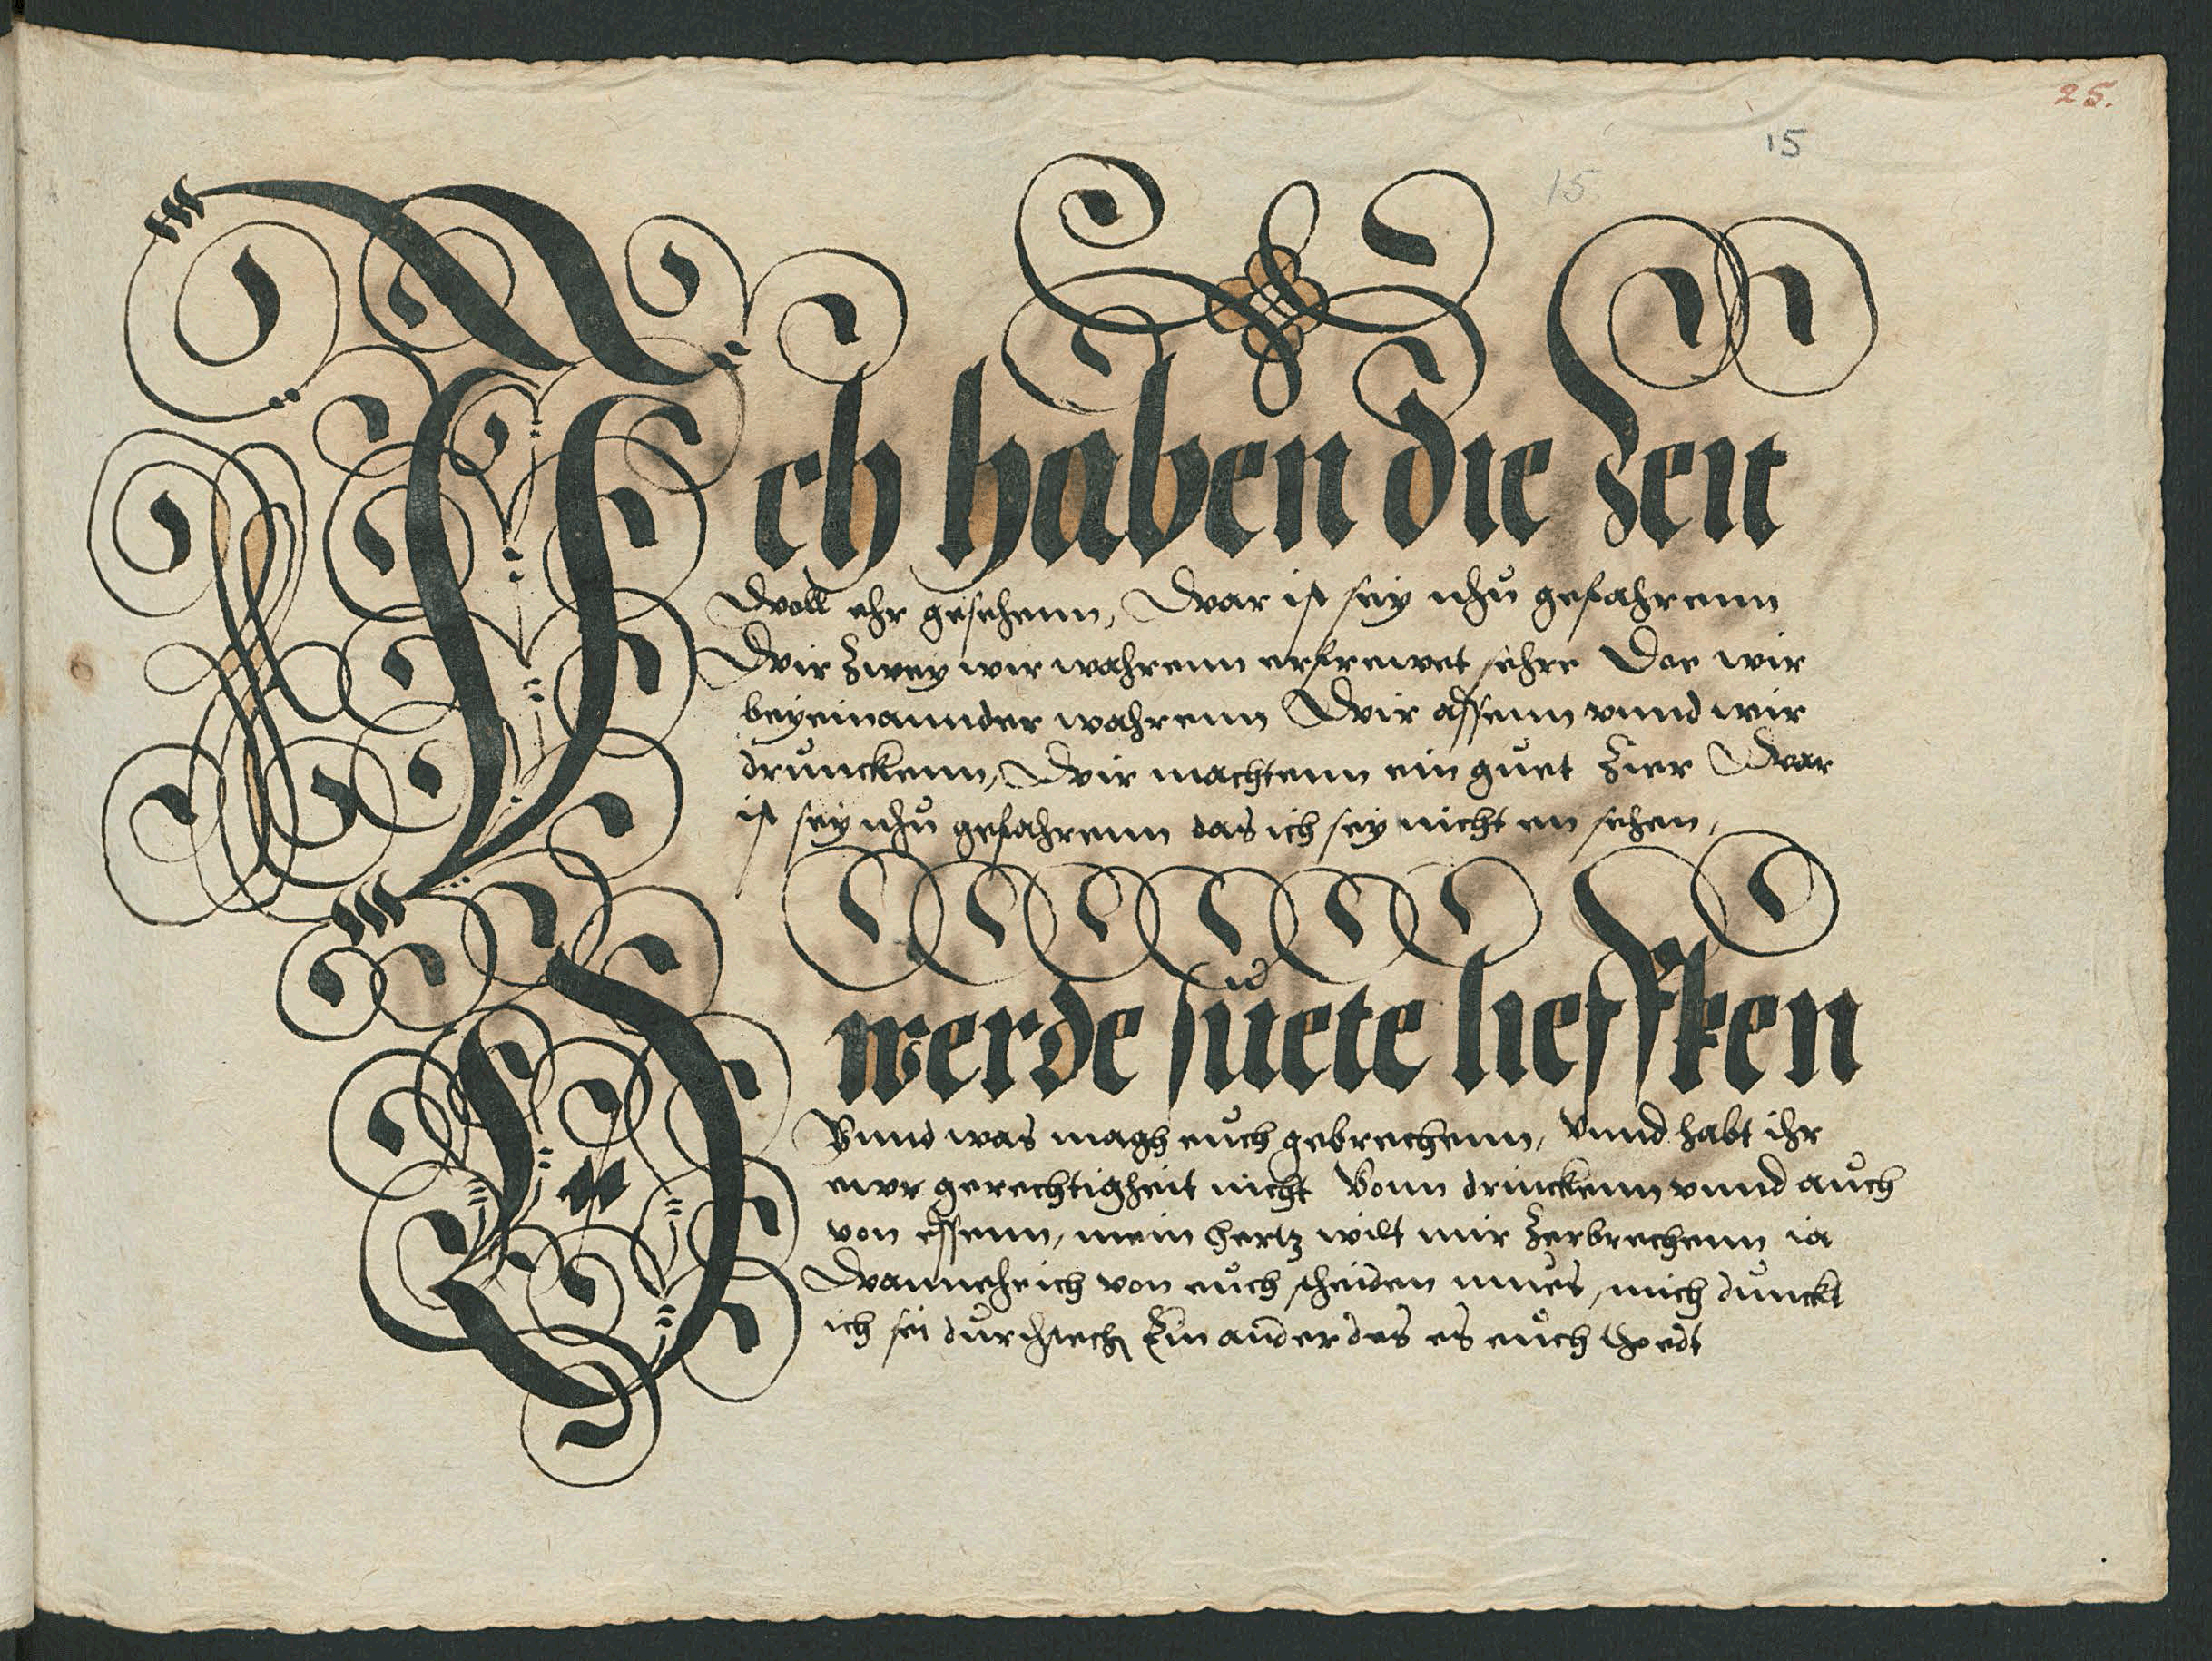 25.
15
15
Ich haben die Zeit
Woll ehr gesehenn, War ist sey nhu gefahrenn
Wir zwey wir wahrenn erfrewet sehre Doe wir
beyeinannder wahrenn Wir assenn vnnd wir
drunckenn, Wir machtenn ein guet Zier War
ist sey nhu gefahrenn das ich sey nicht en sehen,
O werde suete lieffken
Vnnd was magh euch gebrechenn, Vnnd habt ihr
ewr gerechtigheit nicht Vonn drinckenn vnnd auch
von essenn, mein hertz wilt mir Zerbrechenn ia
Wannehe ich von euch scheiden mues, mich dunckt
ich sei Ein ander des es euch